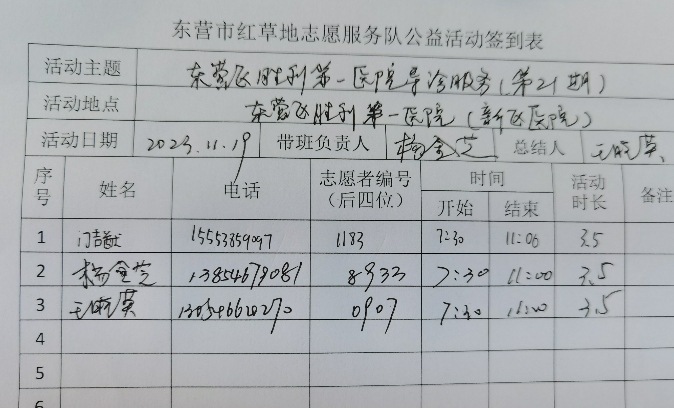 东营市红草地志愿服务队公益活动签到表
活动主题 东营区胜利第一医院导诊服务(第21期)
活动地点 东营区胜利第一医院(新区医院)
活动日期 2023.11.19 带班负责人 杨金芝 总结人 王晓英
序号 姓名 电话 志愿者编号(后四位) 时间 开始 结束 活动时长 备注
1 15553859097 1183 7:30 11:06 3.5
2 杨金芝 13854679081 8933 7:30 11:00 3.5
3 王晓英 0907 7:30 11:00 3.5
4
5
6